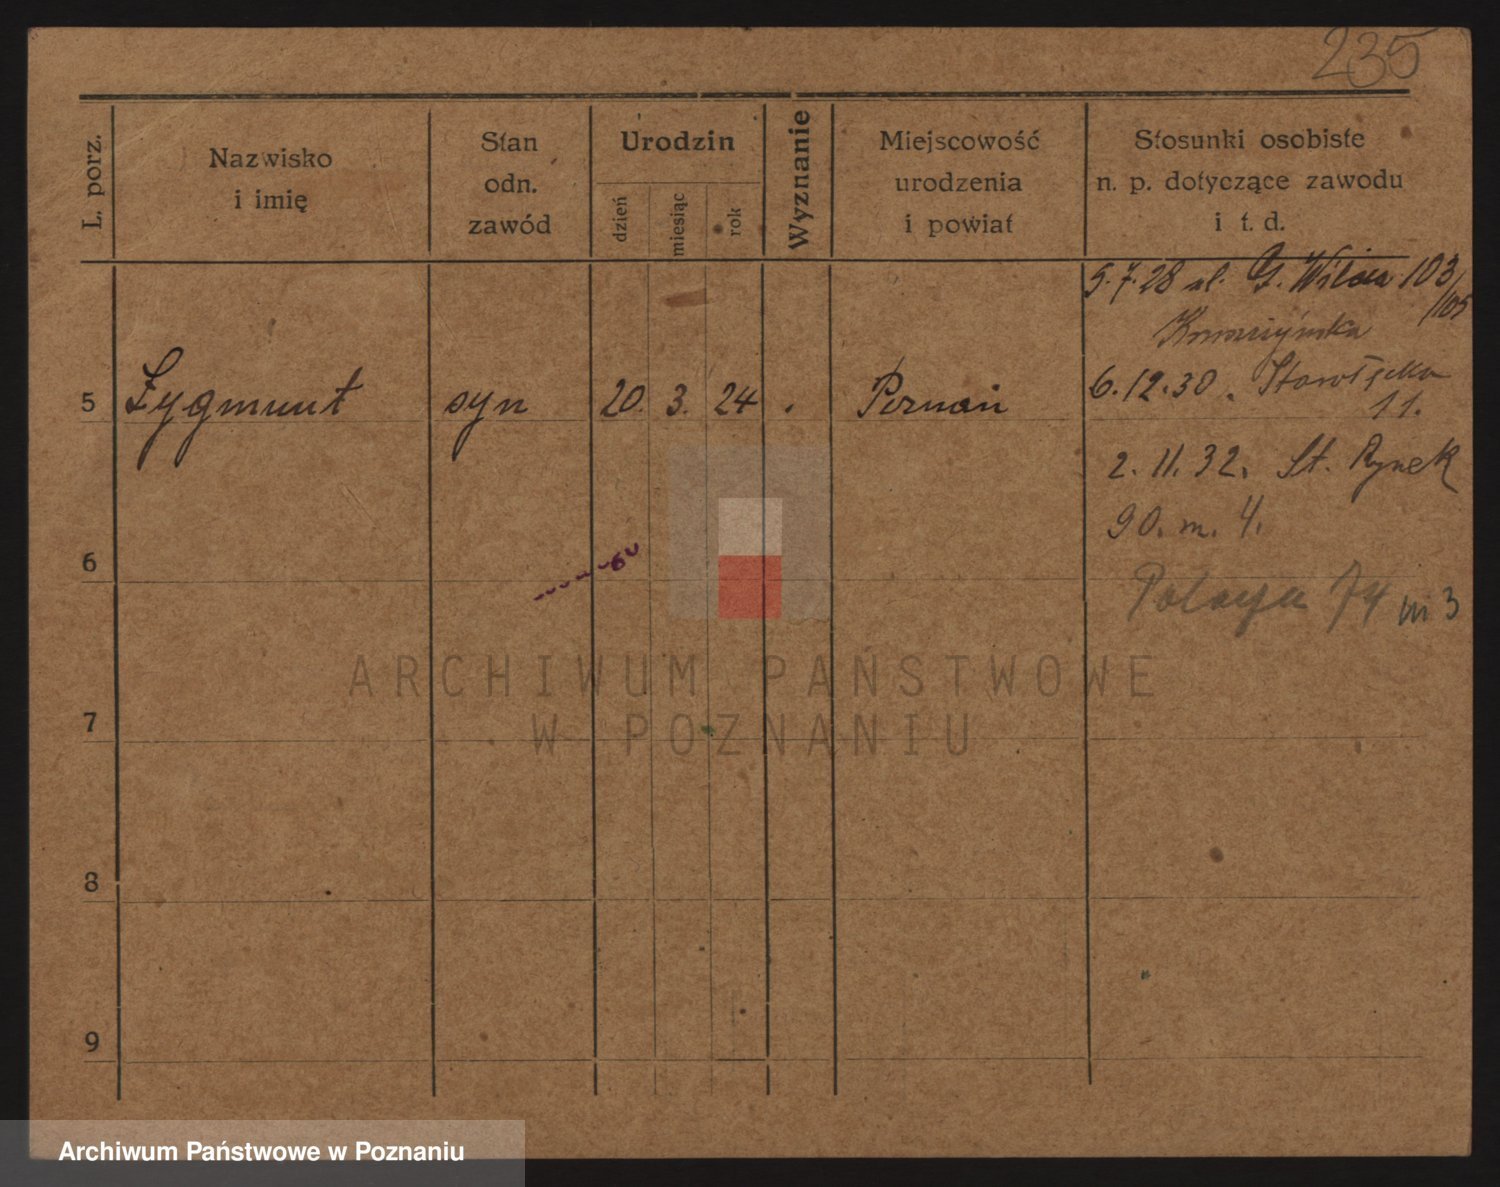 235
L. porz.
Nazwisko
i imię
Stan
odn.
zawód
Urodzin
dzień
miesiąc
rok
Wyznanie
Miejscowość
urodzenia
i powiat
Stosunki osobiste
n. p. dotyczące zawodu
i t. d.
5.7.28 ul. G. Wilda 103
/105
5 Zygmunt syn 20. 3. 24 Poznań
6.12.30.
11.
2. 11. 32. St. Rynek
90. m. 4.
6
74 m 3
ARCHIWUM PAŃSTWOWE
W POZNANIU
7
8
9
Archiwum Państwowe w Poznaniu